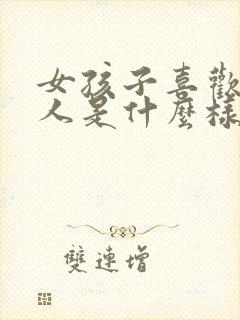 女孩子喜歡
人是什麼樣
雙連增